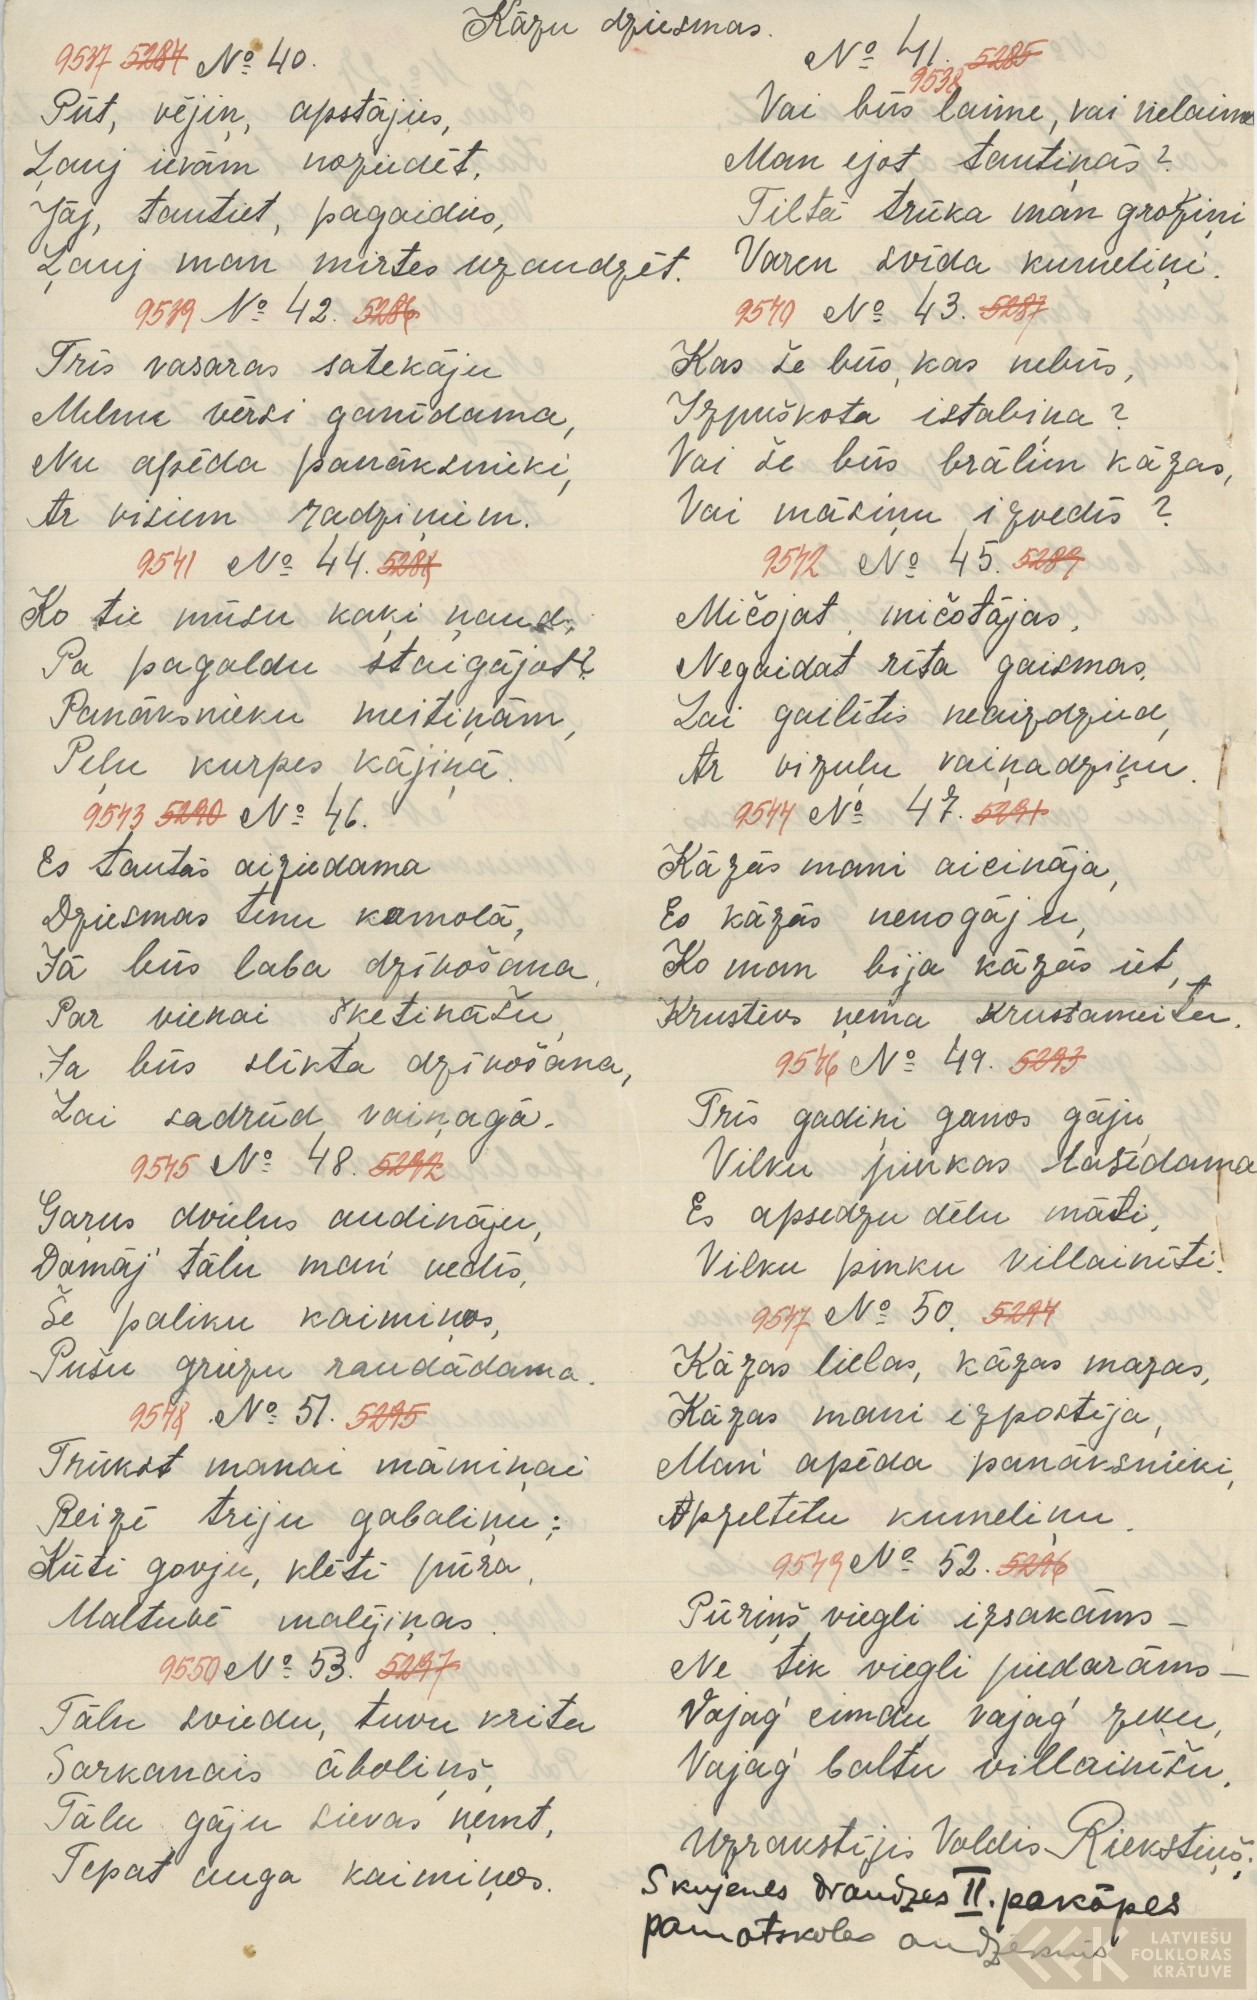 Kāzu dziesmas.
9537 5284 No 40.
Pūt, vējiņ, apstājies,
Ļauj ievām noziedēt.
Jāj, tautiet, pagaidies,
Ļauj man mirtes uzaudzēt.
No 41. 5285
9538
Vai būs laime, vai nelaime
Man ejot tautiņās?
Tiltā trūka man grožiņi
Varen svīda kumeliņi.
9539 No 42. 5286
Trīs vasaras satekāju
Melnu vērsi ganīdama,
Nu apēda panāksnieki,
Ar visiem radziņiem.
9540 No 43. 5287
Kas še būs, kas nebūs,
Izpuškota istabiņa?
Vai še būs brāļiem kāzas,
Vai māsiņu izvedīs?
9541 No 44. 5288
Ko tie mūsu kaķi ņaud,
Pa pagaldu staigājot?
Panāksnieku meitiņām,
Peļu kurpes kājiņā.
9542 No 45. 5289
Mičojat, mičotājas,
Negaidat rīta gaismas,
Lai gailītis neaizdzied,
Ar vizuļu vaiņadziņu.
9543 5290 No 46.
Es tautās aiziedama
Dziesmas tinu kamolā,
Jā būs laba dzīvošana,
Par vienai šķetināšu,
Ja būs slikta dzīvošana,
Lai sadrūd vaiņagā.
9544 No 47. 5291
Kāzās mani aicināja,
Es kāzās nenogāju,
Ko man bija kāzās iet,
Krustevs ņēma Krustameitu.
9545 No 48. 5292
Garus dvieļus audināju,
Domāj' tālu man' vedīs,
Še paliku kaimiņos,
Pušu griezu raudādama.
9546 No 49. 5293
Trīs gadiņi ganos gāju
Vilku pinkas lasīdama
Es apsedzu dēlu māti,
Vilku pinku villainīti.
9547 No 50. 5294
Kāzas lielas, kāzas mazas,
Kāzas mani izpostīja,
Man' apēda panāksnieki,
Apzeltītu kumeliņu.
9548 No 51. 5295
Trūkst manai māmiņai
Reizē triju gabaliņu:
Kūtī govju, klētī pūra,
Maltuvē malējiņas.
9549 No 52. 5296
Pūriņš viegli izsakāms –
Ne tik viegli piedarāms –
Vajag' cimdu, vajag' zeķu,
Vajag' baltu villainīšu.
9550 No 53. 5297
Tālu sviedu, tuvu krita
Sarkanais āboliņš,
Tālu gāju sievas ņemt,
Tepat auga kaimiņos.
Uzrakstījis Voldis Riekstiņš,
Skujenes draudzes II. pakāpes
pamatskolas audzēknis
LATVIEŠU
FOLKLORAS
KRĀTUVE